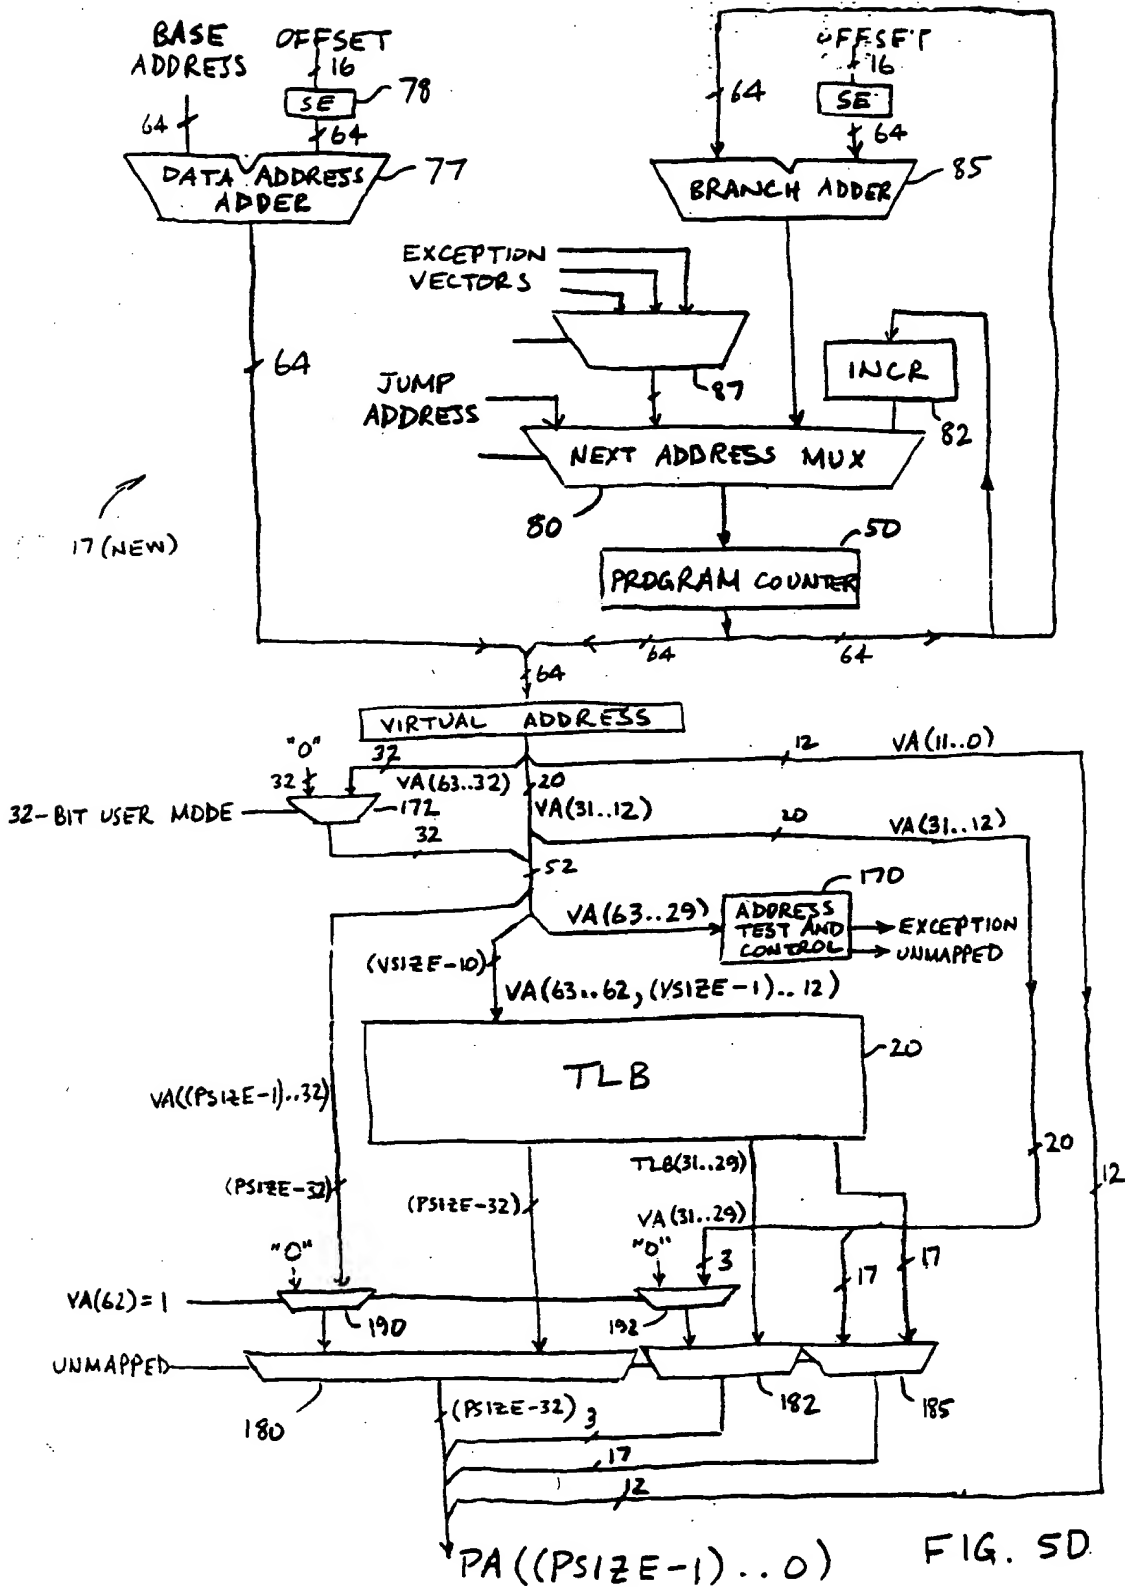 BASE
ADDRESS
OFFSET
16
SE
78
64
64
DATA ADDRESS
ADDER
77
OFFSET
16
64
SE
64
BRANCH ADDER
85
EXCEPTION
VECTORS
87
64
JUMP
ADDRESS
INCR
82
NEXT ADDRESS MUX
80
50
PROGRAM COUNTER
17 (NEW)
64
64
64
VIRTUAL ADDRESS
"0"
32
32
VA(63..32)
20
VA(31..12)
12
VA(11..0)
32-BIT USER MODE
172
32
20
VA(31..12)
52
170
VA(63..29)
ADDRESS
TEST AND
CONTROL
EXCEPTION
UNMAPPED
(VSIZE-10)
VA(63..62, (VSIZE-1)..12)
TLB
20
VA((PSIZE-1)..32)
TLB(31..29)
20
12
(PSIZE-32)
(PSIZE-32)
VA(31..29)
"0"
"0"
3
17
17
VA(62)=1
190
192
UNMAPPED
180
182
185
(PSIZE-32)
3
17
12
PA((PSIZE-1)..0)
FIG. 5D